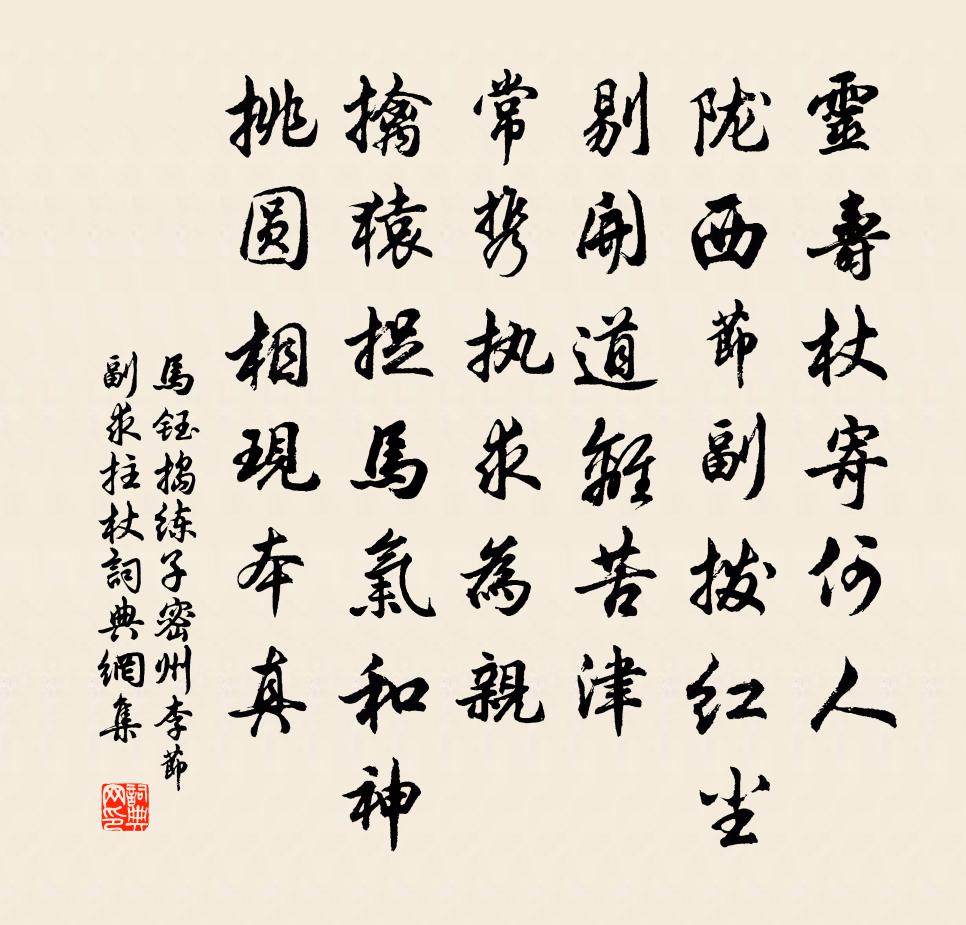 靈壽杖寄何人
陇西節副拨红尘
剔開道離苦津
常携执求為親
擒猿捉馬氣和神
挑圆相現本真
馬钰搗练子密州李節
副求拄杖詞典網集
詞典网印